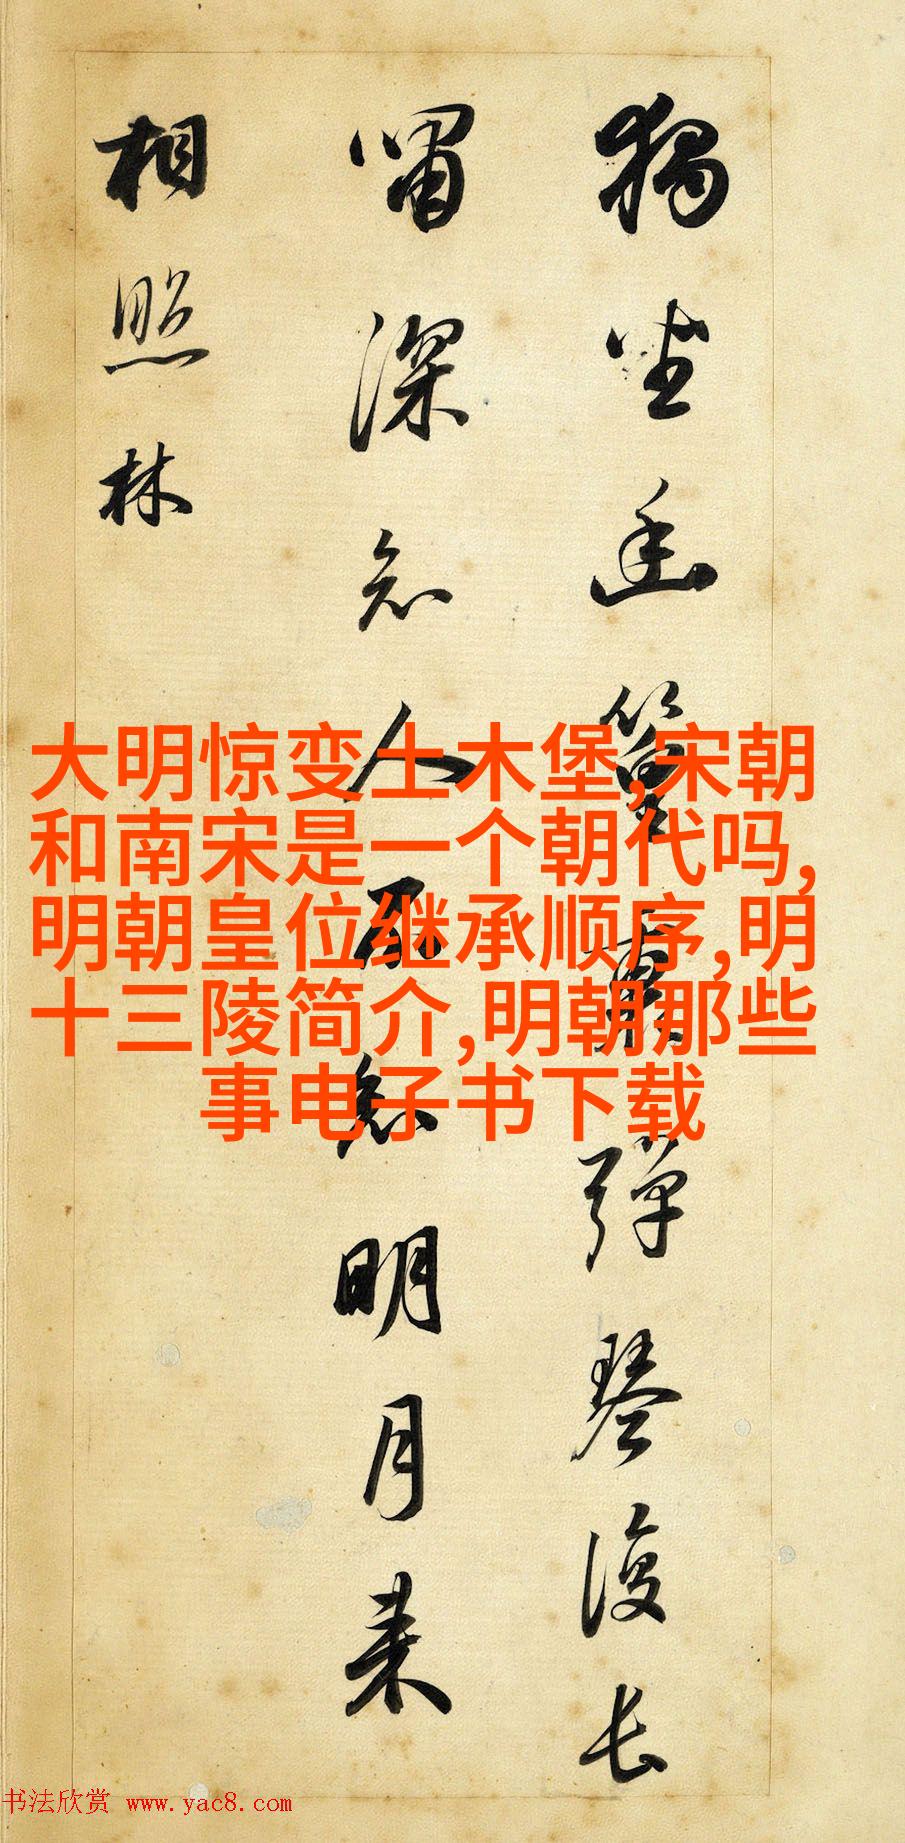 獨坐幽篁裏彈琴復長
嘯深知人不知明月来
相照林
大明惊变土木堡,宋朝
和南宋是一个朝代吗,
明朝皇位继承顺序,明
十三陵简介,明朝那些
事电子书下载
书法欣赏 www.yac8.com